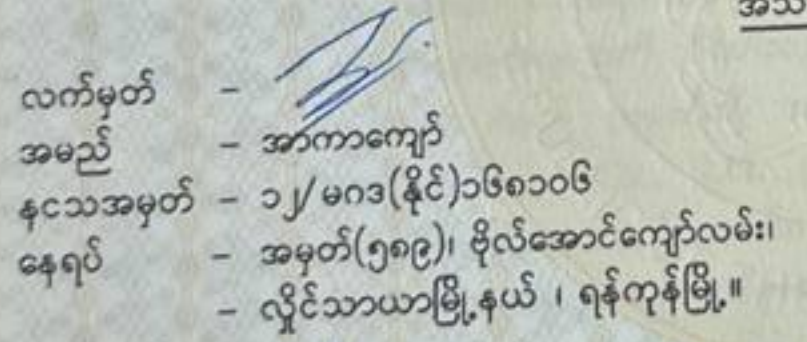 လက်မှတ် -
အမည် - အာကာကျော်
နငသအမှတ် - ၁၂/မဂဒ(နိုင်)၁၆၈၁၀၆
နေရပ် - အမှတ်(၅၈၉)၊ ဗိုလ်အောင်ကျော်လမ်း၊
- လှိုင်သာယာမြို့နယ် ၊ ရန်ကုန်မြို့။